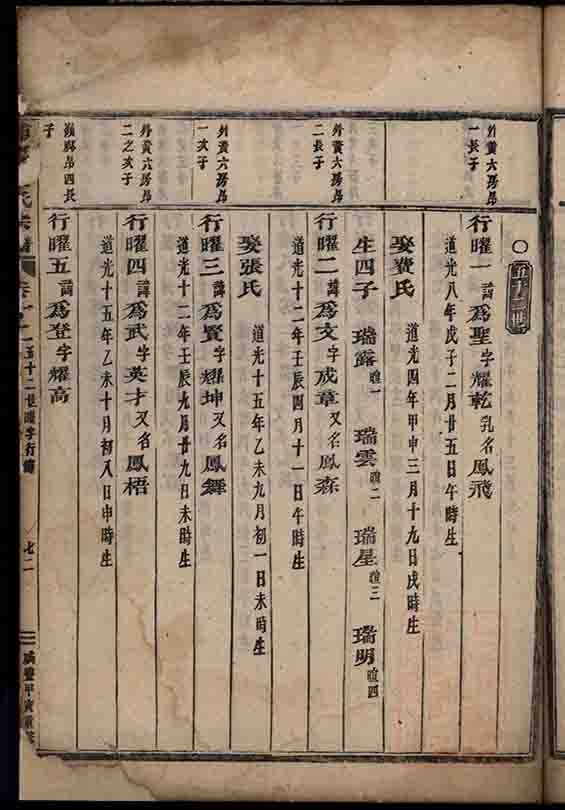 五十二世
外黃六房昂
一長子
行曜一諱爲聖字耀乾乳名鳳飛
道光八年戊子二月廿五日午時生
娶費氏
道光四年甲申三月十九日戌時生
生四子 瑞露 瑞雲 瑞星 瑞明
外黃六房昂
二長子
行曜二諱爲文字成章又名鳳森
道光十二年壬辰四月十一日午時生
娶張氏
道光十五年乙未九月初一日未時生
外黃六房昂
一次子
行曜三諱爲賢字耀坤又名鳳舞
道光十二年壬辰九月廿九日未時生
外黃六房昂
二之次子
行曜四諱爲武字英才又名鳳梧
道光十五年乙未十月初八日申時生
昂四長
子
行曜五諱爲登字耀高
氏宗譜
五十二世曜字行傳
七二
咸豐甲寅重